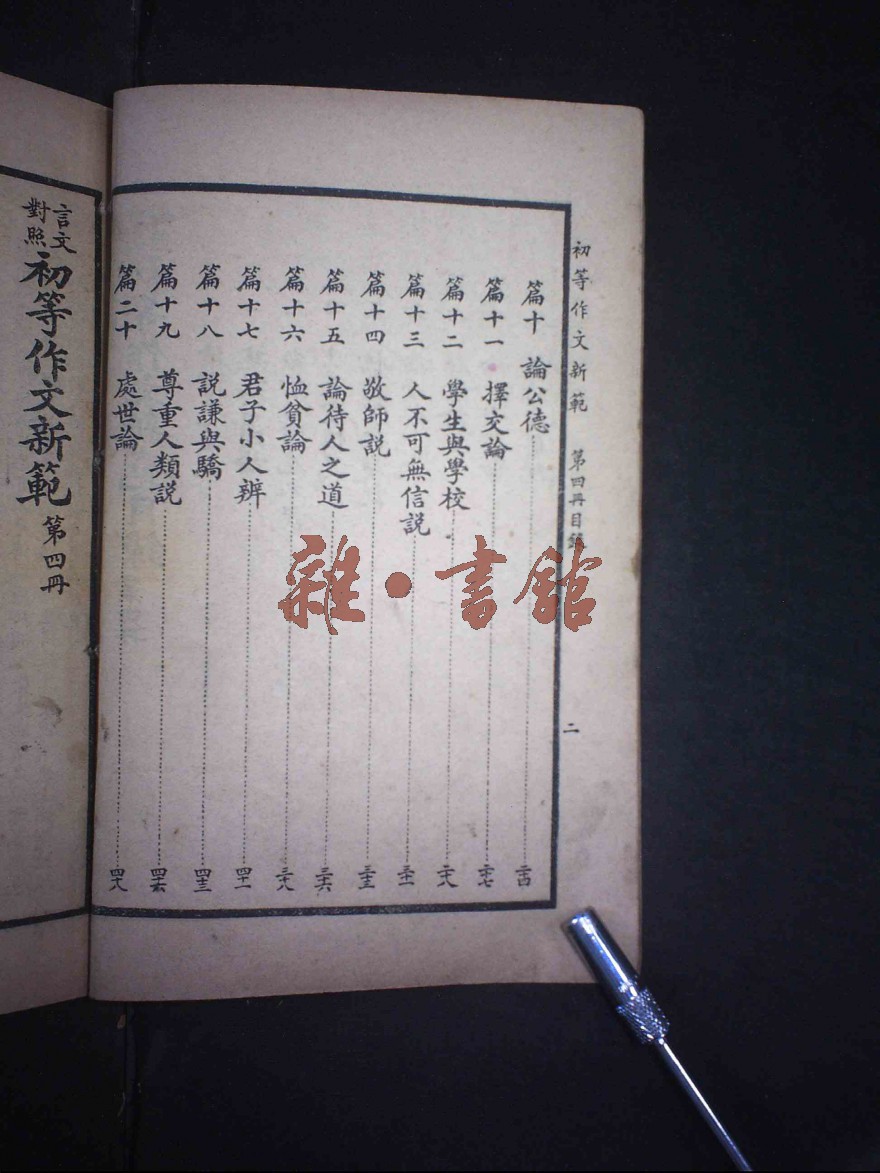 初等作文新範 第四冊目錄 二
篇十 論公德 二十四
篇十一 擇交論 二十七
篇十二 學生與學校 二十八
篇十三 人不可無信説 三十一
篇十四 敬師説 三十三
篇十五 論待人之道 三十六
篇十六 恤貧論 三十八
篇十七 君子小人辨 四十一
篇十八 説謙與驕 四十三
篇十九 尊重人類説 四十六
篇二十 處世論 四十八
言文對照 初等作文新範 第四冊
雜·書館